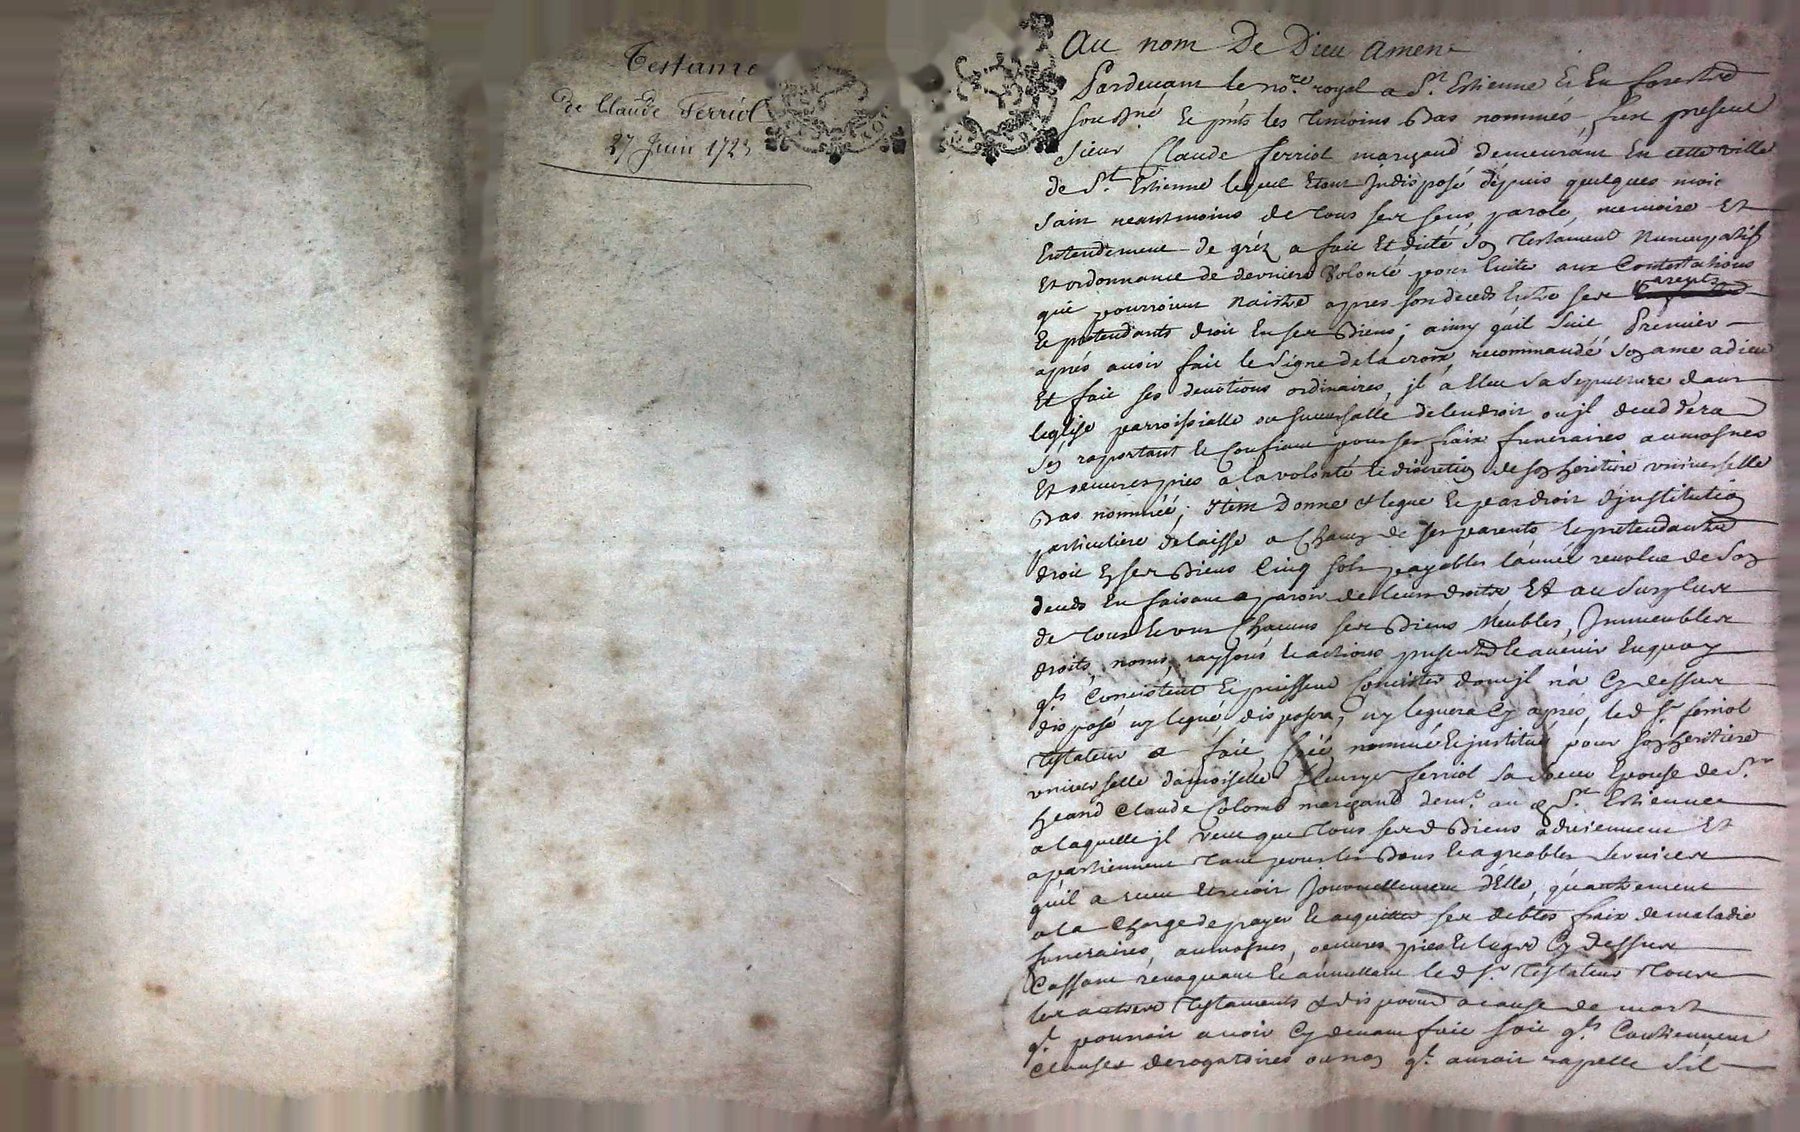 Testame
de Claude Ferriol
27 Juin 1723
Au nom De Dieu Amen
Pardevant le no.re royal a St. Estienne Et En forest
sousigné Et pnts les temoins Bas nommés fut present
Sieur Claude ferriol marchand demeurant En cette ville
de St. Estienne lequel Etant Indisposé depuis quelques mois
sain neantmoins de tous ses sens, parole, memoire Et
Entendement de gréz a fait Et dicté son Testament Nuncupatif
Et ordonnance de derniere Volonté pour Eviter aux Contestations
qui pourroient Naistre apres son deceds Entre ses parents
Et pretendants droit En ses Biens; ainsy quil suit Premier
aprés avoir fait le Signe de la croix recommandé son ame a dieu
Et fait ses devotions ordinaires, jl à Eleu Sa Sepulture dans
leglise parroissialle ou succursalle de lendroit ou jl deceddera
s'en raportant Et Confiant pour ses fraix funeraires aumosnes
Et oeuvres pies a la volonté Et discretion de son heritiere universelle
Bas nommée; Item Donne & legue Et par droit djnstitution
particuliere delaisse a Chacun de ses parents Et pretendants
droit En ses Biens Cinq sols payables lannée revolue de son
deceds En faisant aparoir de leurs droits Et au Surplus
de tous Et uns Chacuns ses Biens Meubles, Immeubles
droits, noms, raysons Et actions presents Et avenir En quoy
qls Consistent Et puissent Consister dont jl n'a Cy dessus
disposé ny legué disposera, ny leguera Cy aprés, led. Sr. ferriol
testateur a fait, Créé nommé Et jnstitué pour son heritiere
universelle damoiselle fleurye ferriol Sa Soeur Epouse de Sr.
Jeand Claude Colomb marchand dem.t au d. St. Estienne
a laquelle jl veut que tous sesd. Biens adviennent Et
apartiennent tant pour les Bons Et agreables Services
quil a receu Et reçoit Journellement d'Elle, qu'autrement
a la Charge de payer Et acquitter ses debtes fraix de maladie
funeraires, aumosnes, oeuvres pies Et legs Cy dessus
Cassant revoquant Et annullant led. Sr. Testateur Tous
les autres Testaments & dispositions a cause de mort
ql. pourroit avoir Cy devant fait soit qls Contiennent
Clauses derogatoires ou non ql. auroit rapellé Sil